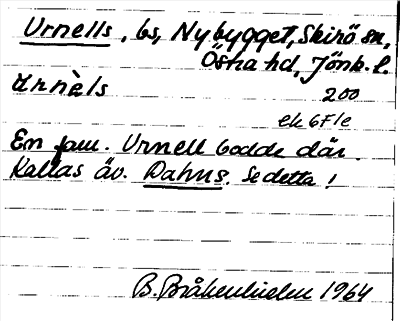 Urnells, bs, Nybygget, Skirö sn,
Östra hd, Jönk. l.
ừrnèls
200
ek 6F1e
En fam. Urnell bodde där.
Kallas äv. Dahns. Se detta!
B. Bråkenhielm 1964